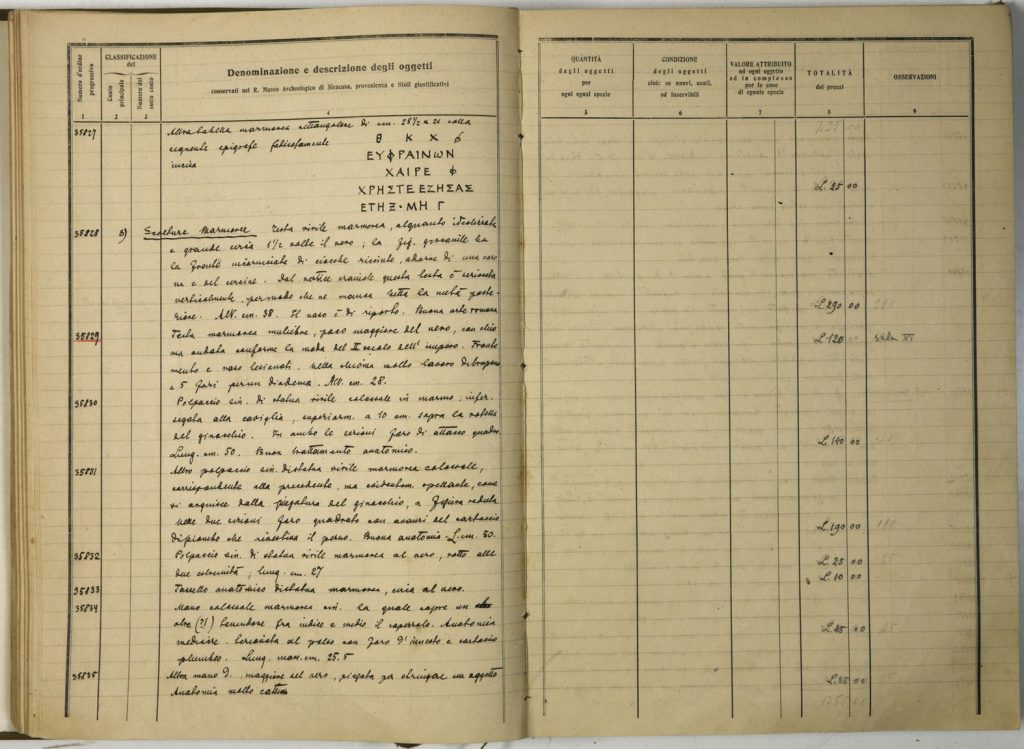 Numero d'ordine progressivo
CLASSIFICAZIONE
del
Conto principale
Numero del sotto conto
Denominazione e descrizione degli oggetti
conservati nel R. Museo Archeologico di Siracusa, provenienza e titoli giustificativi
1 2 3 4
35827 Altra tabella marmorea rettangolare di cm. 25½ x 21 colla
seguente epigrafe
incisa
Θ Κ Χ
ΕΥΦΡΑΙΝΩΝ
ΧΑΙΡΕ
ΧΡΗΣΤΕ ΕΖΗΣΑΣ
ΕΤΗΞ·ΜΗ Γ
35828 B) Sculture Marmoree Testa virile marmorea, alquanto idealizzata
e grande circa 1½ volte il vero; la fig. giovanile ha
la fronte incorniciata di ciocche ricciute, adorne di una coro
na e del cercine. Dal vertice craniale questa testa è sezionata
verticalmente, per modo che ne manca netta la metà poste-
riore. Alt. cm. 38. Il naso è di riporto. Buona arte romana
35829 Testa marmorea muliebre, poco maggiore del vero, con chio
ma ondata conforme la moda del II secolo dell'impero. Fronte
mento e naso lesionati. Nella chioma molto lavoro di trapano
e 5 fori per un diadema. Alt. cm. 28.
35830 Polpaccio sin. di statua virile colossale in marmo, infer.
segata alla caviglia, superiorm. a 10 cm. sopra la rotella
del ginocchio. In ambo le sezioni foro di attacco quadro.
Lung. cm. 50. Buon trattamento anatomico.
35831 Altro polpaccio sin. di statua virile marmorea colossale,
corrispondente alla precedente, ma
si arguisce dalla piegatura del ginocchio, a figura seduta
Nelle due sezioni foro quadrato con avanzi del cartoccio
di piombo che rivestiva il perno. Buona anatomia. L. cm. 50.
35832 Polpaccio sin. di statua virile marmorea al vero, rotto alle
due estremità; lung. cm. 27
35833 Tassello anatomico di statua marmorea, circa al vero.
35834 Mano colossale marmorea sin. la quale copre un
otre (?!) tenendone fra indice e medio il capezzolo. Anatomia
mediocre. Sezionata al polso con foro d'innesto e cartoccio
plumbeo. Lung. mass. cm. 25.5
35835 Altra mano d., maggiore del vero, piegata per stringere un oggetto
Anatomia molto cattiva
QUANTITÀ
degli oggetti
per
ogni ogni specie
5
CONDIZIONE
degli oggetti
cioè: se nuovi, usati,
od inservibili
6
VALORE ATTRIBUITO
ad ogni oggetto
ed in complesso
per le cose
di eguale specie
7
TOTALITÀ
dei prezzi
8
OSSERVAZIONI
9
425 00
L. 25 00
L. 290 00
L. 120 00 sala XI
L. 140 00
L. 190 00
L. 25 00
L. 10 00
L. 45 00
L. 35 00